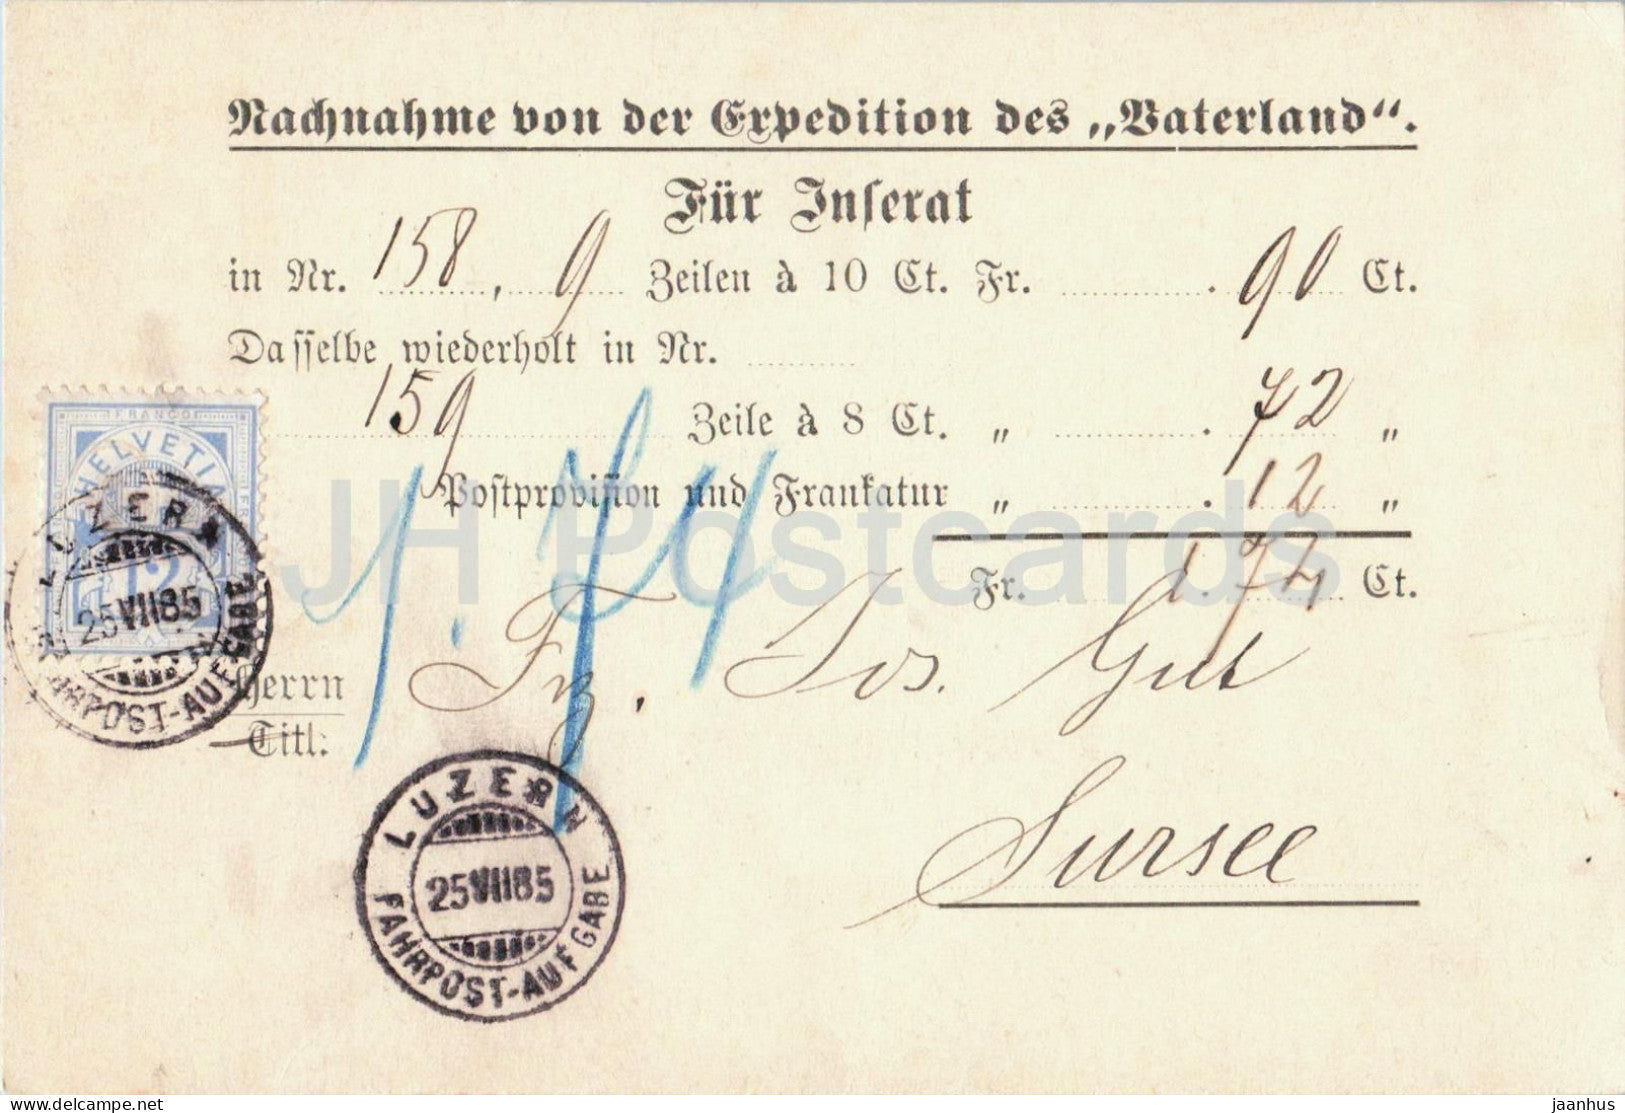 Nachnahme von der Expedition des „Vaterland“.
Für Inserat
in Nr. 158, 9 Zeilen à 10 Ct. Fr. . 90 Ct.
Dasselbe wiederholt in Nr.
159 Zeile à 8 Ct. „ . 72 „
Postprovision und Frankatur „ . 12 „
Fr. 1.74 Ct.
1.74
Herrn Fz. Jos. Gut
Titl:
Sursee
FRANCO
HELVETIA
12
LUZERN
25 VII 85
FAHRPOST-AUFGABE
LUZERN
25 VII 85
FAHRPOST-AUFGABE
JH Postcards
delcampe.net
jaanhus